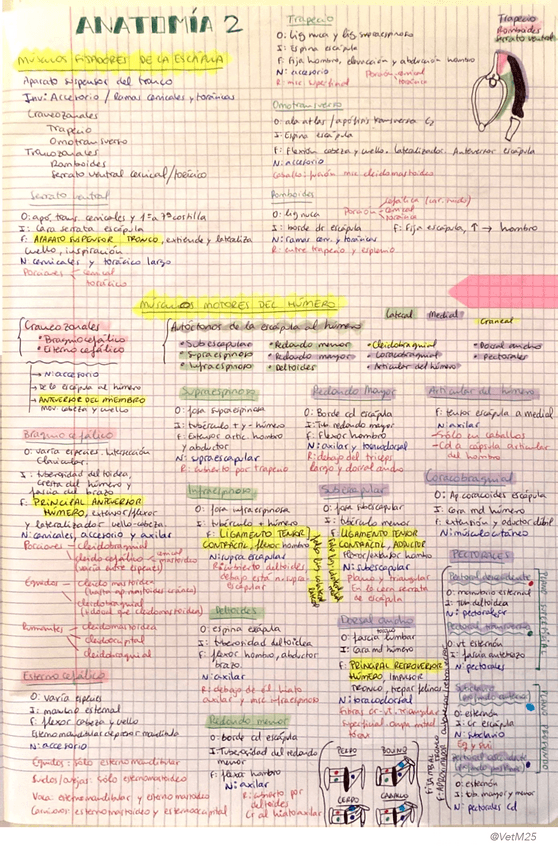 ANATOMÍA 2
MÚSCULOS FIJADORES DE LA ESCÁPULA
Aparato suspensor del tronco
Inv: Accesorio / Ramas cervicales y torácicas
Craneozonales
Trapecio
Omotransverso
Troncozonales
Romboides
Serrato ventral cervical/torácico
Serrato ventral
O: apó. trans. cervicales y 1ª a 7ª costilla
I: cara serrata escápula
F: APARATO SUSPENSOR TRONCO, extiende y lateraliza
cuello, inspiración
N: cervicales y torácico largo
Porciones cervical
torácico
Trapecio
O: lig nuca y lig supraespinoso
I: Espina escápula
F: Fija hombro, elevación y abducción hombro
N: accesorio
R: msc superficial
Porción cervical
torácica
Omotransverso
O: ala atlas / apófisis transversa C2
I: Espina escápula
F: Flexión cabeza y cuello. lateralizador. Anteversor escápula
N: accesorio
caballo: fusión msc cleidomastoideo
Romboides
O: lig nuca
I: borde de escápula
N: ramas cerv. y torácicas
R: entre trapecio y esplenio
Porción
cefálica (car. rudo)
cervical
torácica
F: Fija escápula, ↑ → hombro
Trapecio
Romboides
Serrato ventral
MÚSCULOS MOTORES DEL HÚMERO
Craneozonales
• Braquiocefálico
• Esternocefálico
Autóctonos de la escápula al húmero
Lateral Medial Craneal
• Subescapular • Redondo menor • Cleidobraquial • Dorsal ancho
• Supraespinoso • Redondo mayor • Coracobraquial • Pectorales
• Infraespinoso • Deltoides • Articular del húmero
→ N: accesorio
→ De la escápula al húmero
→ ANTEVERSOR DEL MIEMBRO
Mov cabeza y cuello
Braquiocefálico
O: varía especies. Intersección
Clavicular.
I: tuberosidad deltoidea,
cresta del húmero y
fascia del brazo
F: PRINCIPAL ANTEVERSOR
HÚMERO, extensor/flexor
y lateralizador cuello-cabeza.
N: cervicales, accesorio y axilar
Porciones cleidobraquial
cleidocefálico
(varía entre especies)
Équidos cleidomastoidea
cleidobraquial
Rumiantes cleidomastoidea
cleidooccipital
cleidobraquial
Esternocefálico
O: varía especies
I: manubrio esternal
F: flexor cabeza y cuello
Esternomandibular depresor mandíbula
N: accesorio
Équidos: sólo esternomandibular
Suidos/ovejas: sólo esternomastoideo
Vaca: esternomandibular y esternomastoideo
Carnívoros esternomastoideo y esternooccipital
Supraespinoso
O: fosa supraespinosa
I: tubérculo + y - húmero
F: Extensor artic. hombro y
abductor
N: supraescapular
R: cubierto por trapecio
Infraespinoso
O: fosa infraespinosa
I: tubérculo + húmero
F: LIGAMENTO TENSOR
CONTRÁCTIL, flexor hombro
N: supraescapular
R: cubierto deltoides
Deltoides
O: espina escápula
I: tuberosidad deltoidea
F: flexor hombro, abductor
brazo
N: axilar
Redondo menor
O: borde cd escápula
I: Tuberosidad del redondo
menor
F: flexor hombro
N: axilar
R: cubierto por
deltoides
Redondo Mayor
O: Borde cd escápula
I: Tub redondo mayor
F: Flexor hombro
N: axilar y toracodorsal
R: debajo del tríceps
largo y dorsal ancho
Subescapular
O: fosa subescapular
I: tubérculo menor
F: LIGAMENTO TENSOR
CONTRÁCTIL, ADUCTOR
flexor/abductor hombro
N: subescapular
Plano y triangular
En la cara serrata
de escápula
Dorsal ancho
O: fascia lumbar
I: Cara md húmero
F: PRINCIPAL RETROVERSOR
HÚMERO, impulsor
TRONCO, trepar felinos
N: toracodorsal
PERRO BOVINO
CERDO CABALLO
Articular del húmero
F: tensor escápula a medial
N: axilar
- Sólo en caballos
- Cd a cápsula articular
del hombro
Coracobraquial
O: Ap. coracoides escápula
I: Cara md húmero
F: extensión y aductor débil
N: musculocutáneo
PECTORALES
Pectoral descendente
O: manubrio esternal
I: Tub deltoidea
N: pectorales
Pectoral transverso
O: vt esternón
I: fascia antebrazo
N: pectorales
Subclavio
O: esternón
I: Cr escápula
N: subclavio
Eq y sui
Pectoral ascendente
O: esternón
I: tub. mayor y menor
N: pectorales cd
@VetM25